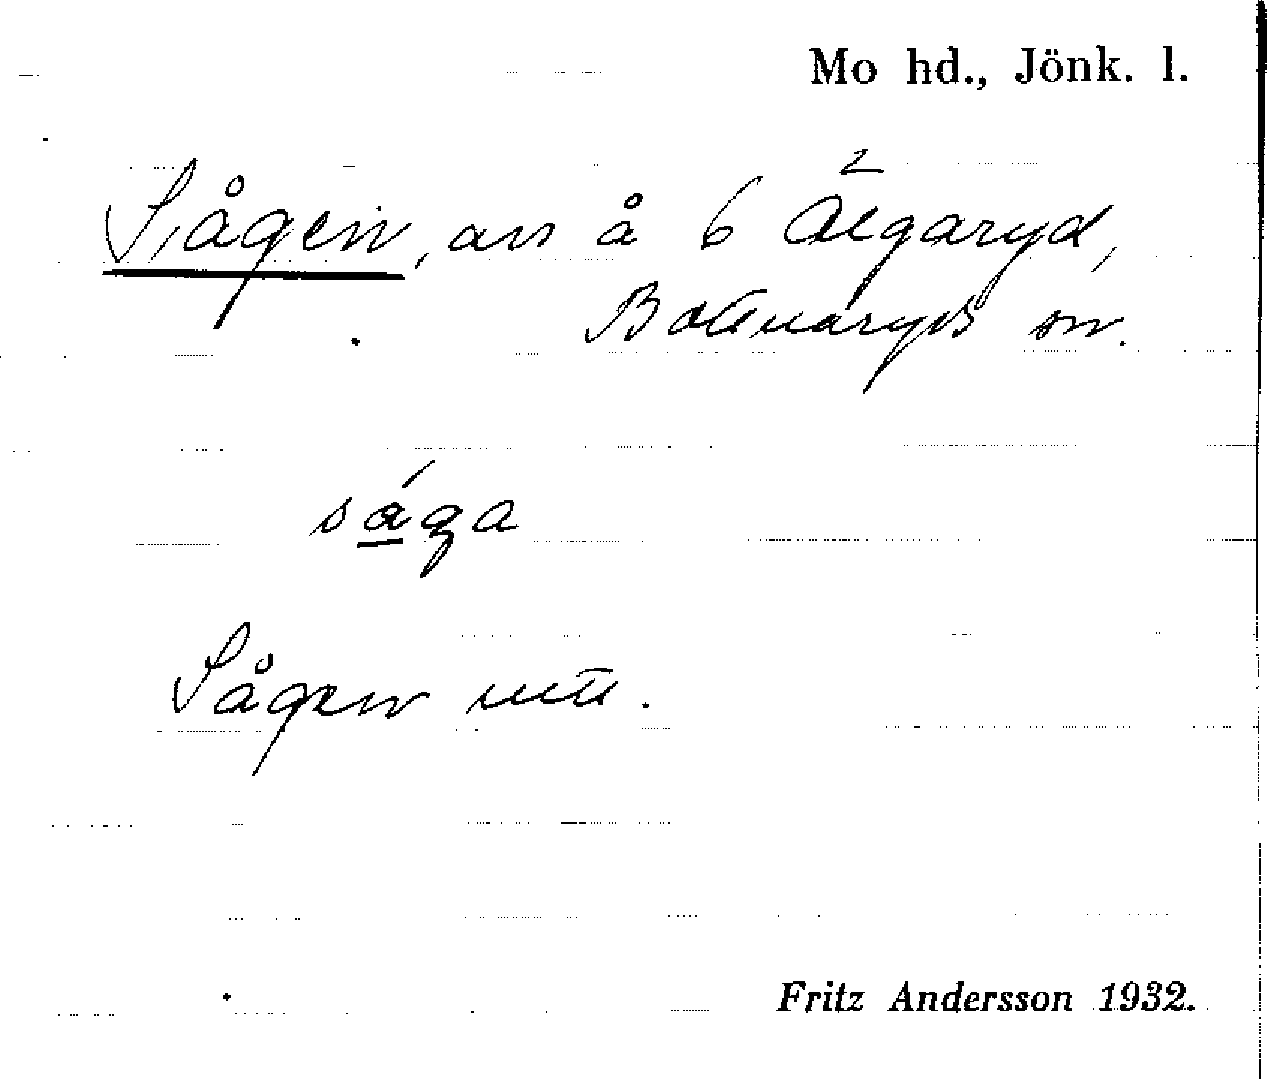 Mo hd., Jönk. l.
Sågen, avs å 6 Älgaryd,
Bottnaryds sn.
såga
Sågen utt.
Fritz Andersson 1932.